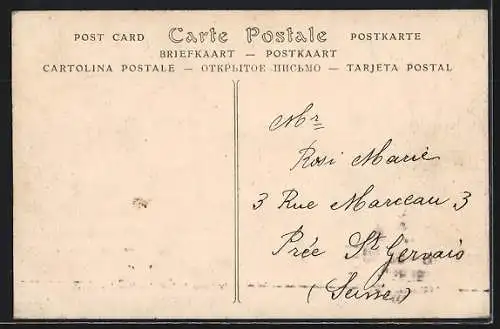 POST CARD Carte Postale POSTKARTE
BRIEFKAART — POSTKAART
CARTOLINA POSTALE — ОТКРЫТОЕ ПИСЬМО — TARJETA POSTAL
Mr
Rosi Marie
3 Rue Marceau 3
Prée St Gervais
(Suisse)